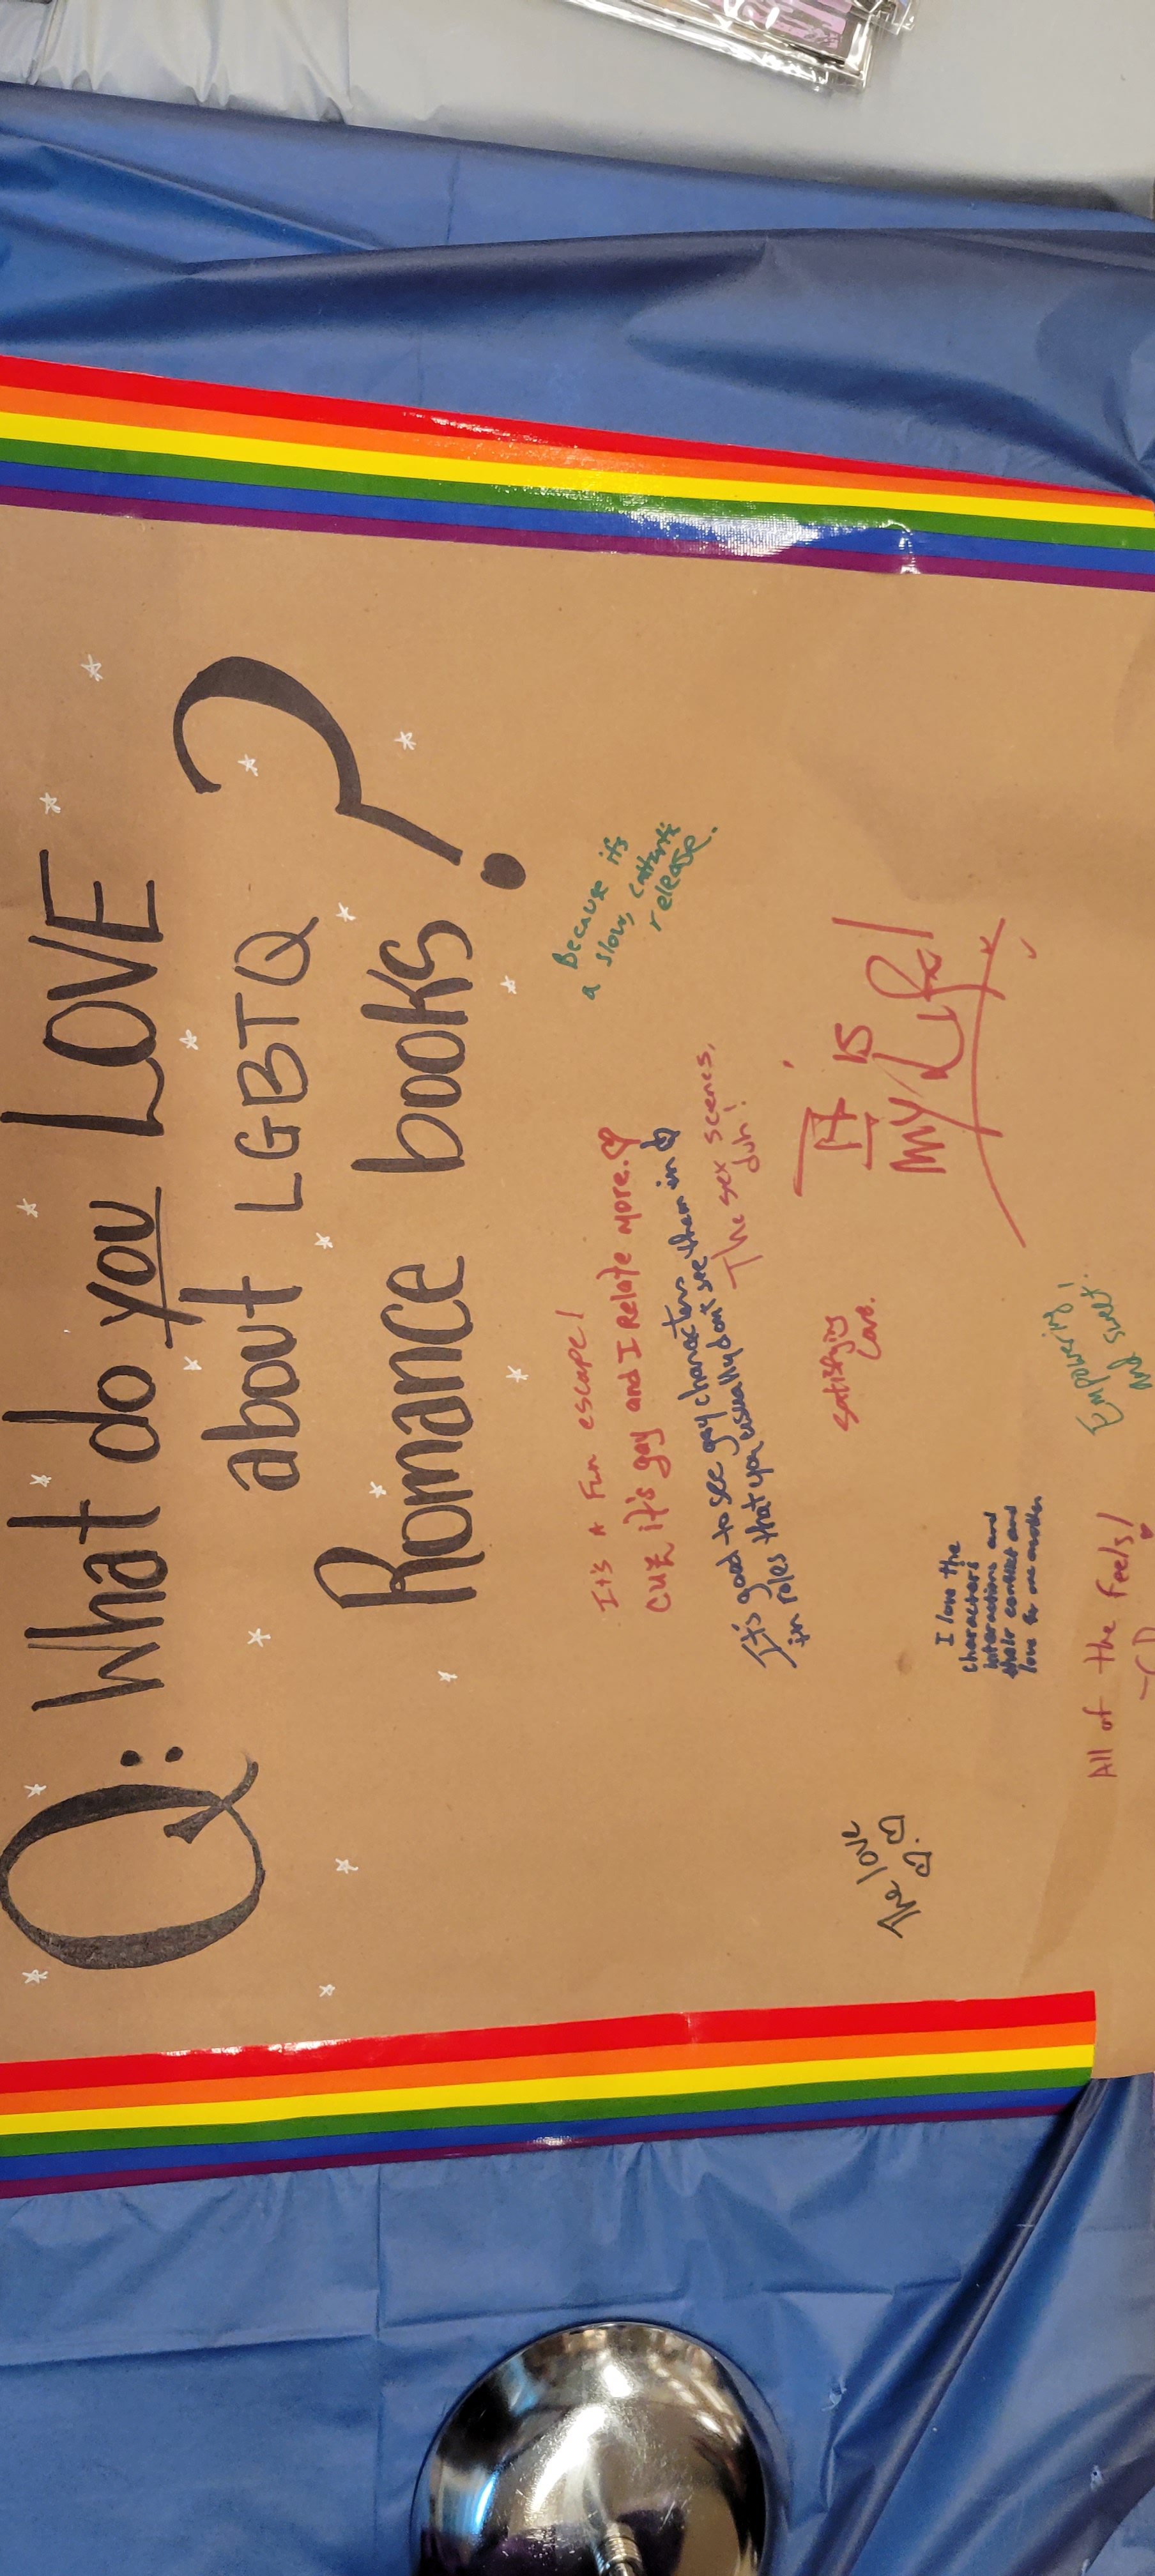 Q: What do you LOVE
about LGBTQ
Romance books?
Because its
a slow, cathartic
release.
It's a Fun escape!
cuz it's gay and I Relate more.
It's good to see gay characters
in roles that you usually don't see them in
The sex scenes,
duh!
IT IS
MY Life!
satisfying
Love.
The love
I love the
characters
interactions and
their conflict and
love for one another
Empowering!
and sweet.
All of the feels!